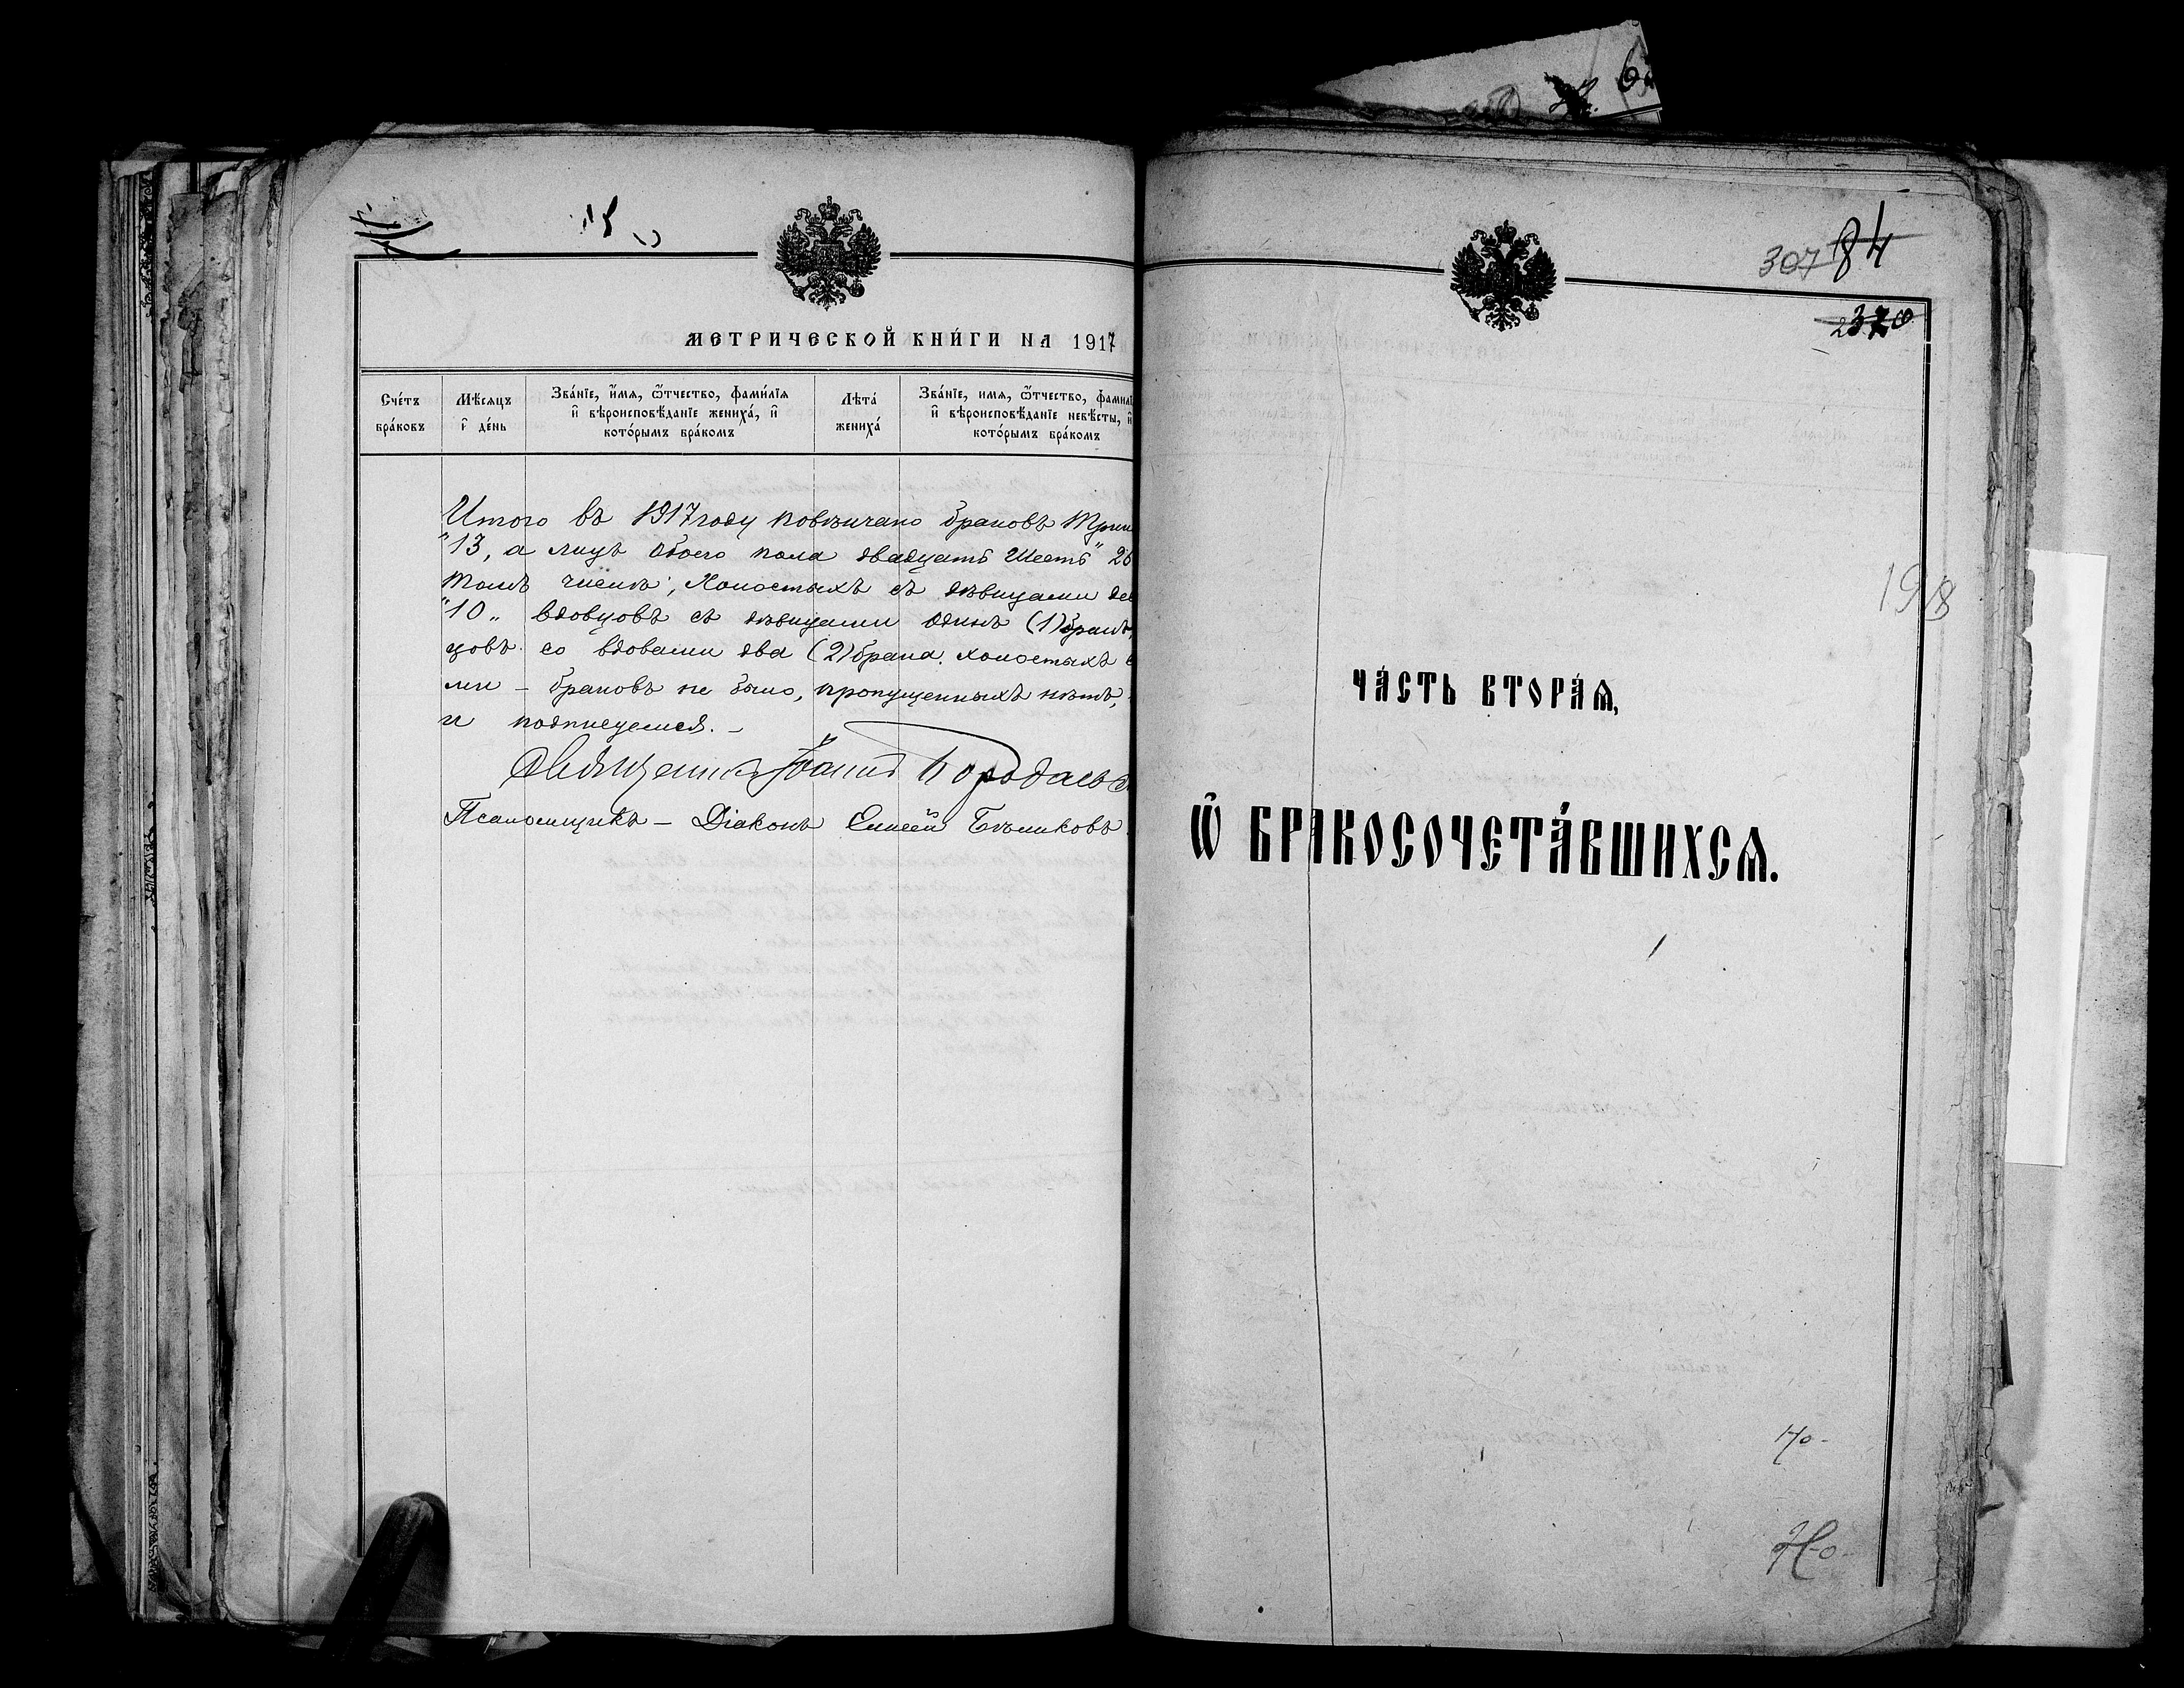 18
МЕТРИЧЕСКОЙ КНИ́ГИ НА 1917
Сче́тъ бра́ковъ
Мѣ́сяцъ и҆ де́нь
Зва́нїе, и҆́мѧ, ѻ҆́тчество, фами́лїѧ и҆ вѣроисповѣ́данїе жениха́, и҆ кото́рымъ бра́комъ
Лѣта́ жениха́
Зва́нїе, имѧ, ѻ҆́тчество, фамилї и҆ вѣроисповѣ́данїе невѣ́сты, и҆ кото́рымъ бра́комъ
Итого въ 1917 году повѣнчано браковъ Трин
"13, а лицъ обоего пола двадцать шесть" 26
томъ числѣ; Холостыхъ съ дѣвицами де
"10„ вдовцовъ съ дѣвицами одинъ (1) бракъ,
цовъ со вдовами два (2) брака. холостыхъ с
ми – браковъ не было, пропущенныхъ нѣтъ,
и подписуемся. –
Священникъ Іоаннъ Бородаевъ
Псаломщикъ – Діаконъ Елисей Бѣликовъ
307 84
2370
1918
ЧА́СТЬ ВТОРА́Ѧ,
Ѽ БРАКОСОЧЕТА́ВШИХСѦ.